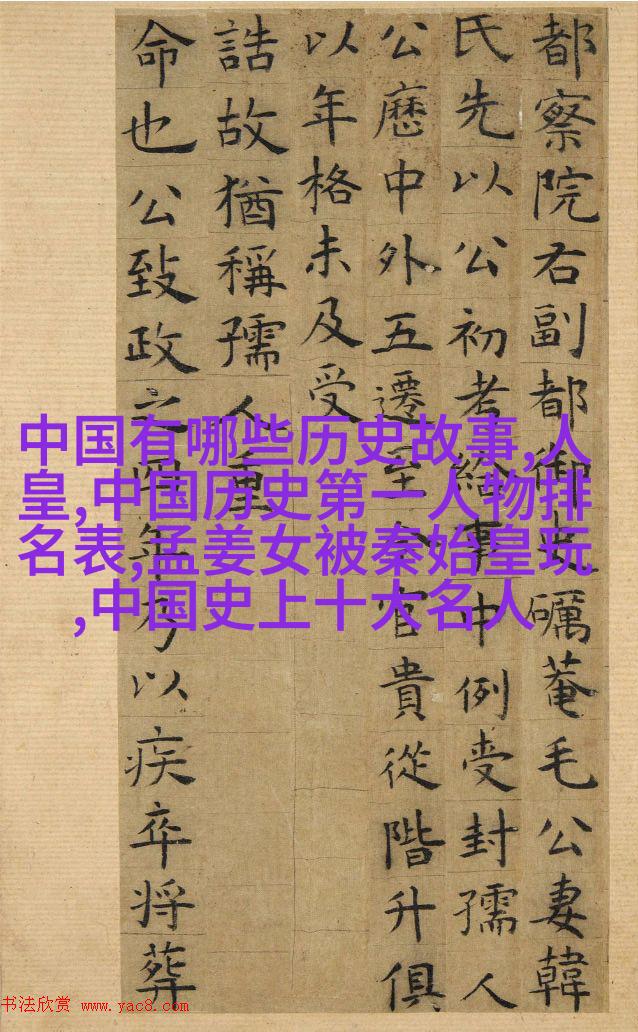 都察院右副都御史礪菴毛公妻韓
氏先以公初考給事中例受封孺人
公歷中外五遷至今官貴從階升俱
以年格未及受
誥故猶稱孺人重
命也公致政之明年以疾卒将葬
中国有哪些历史故事,人
皇,中国历史第一人物排
名表,孟姜女被秦始皇玩
,中国史上十大名人
书法欣赏 www.yac8.com